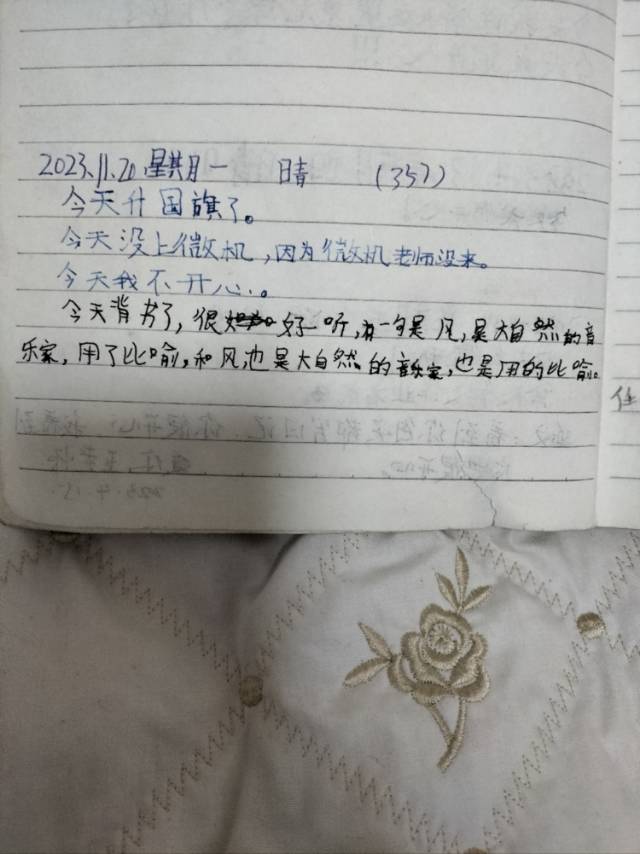 2023.11.20 星期一 晴 (357)
今天升国旗了。
今天没上微机,因为微机老师没来。
今天我不开心。
今天背书了,很好听,有一句是风,是大自然的音
乐家,用了比喻,和风,也是大自然的音乐家,也是用的比喻。
任